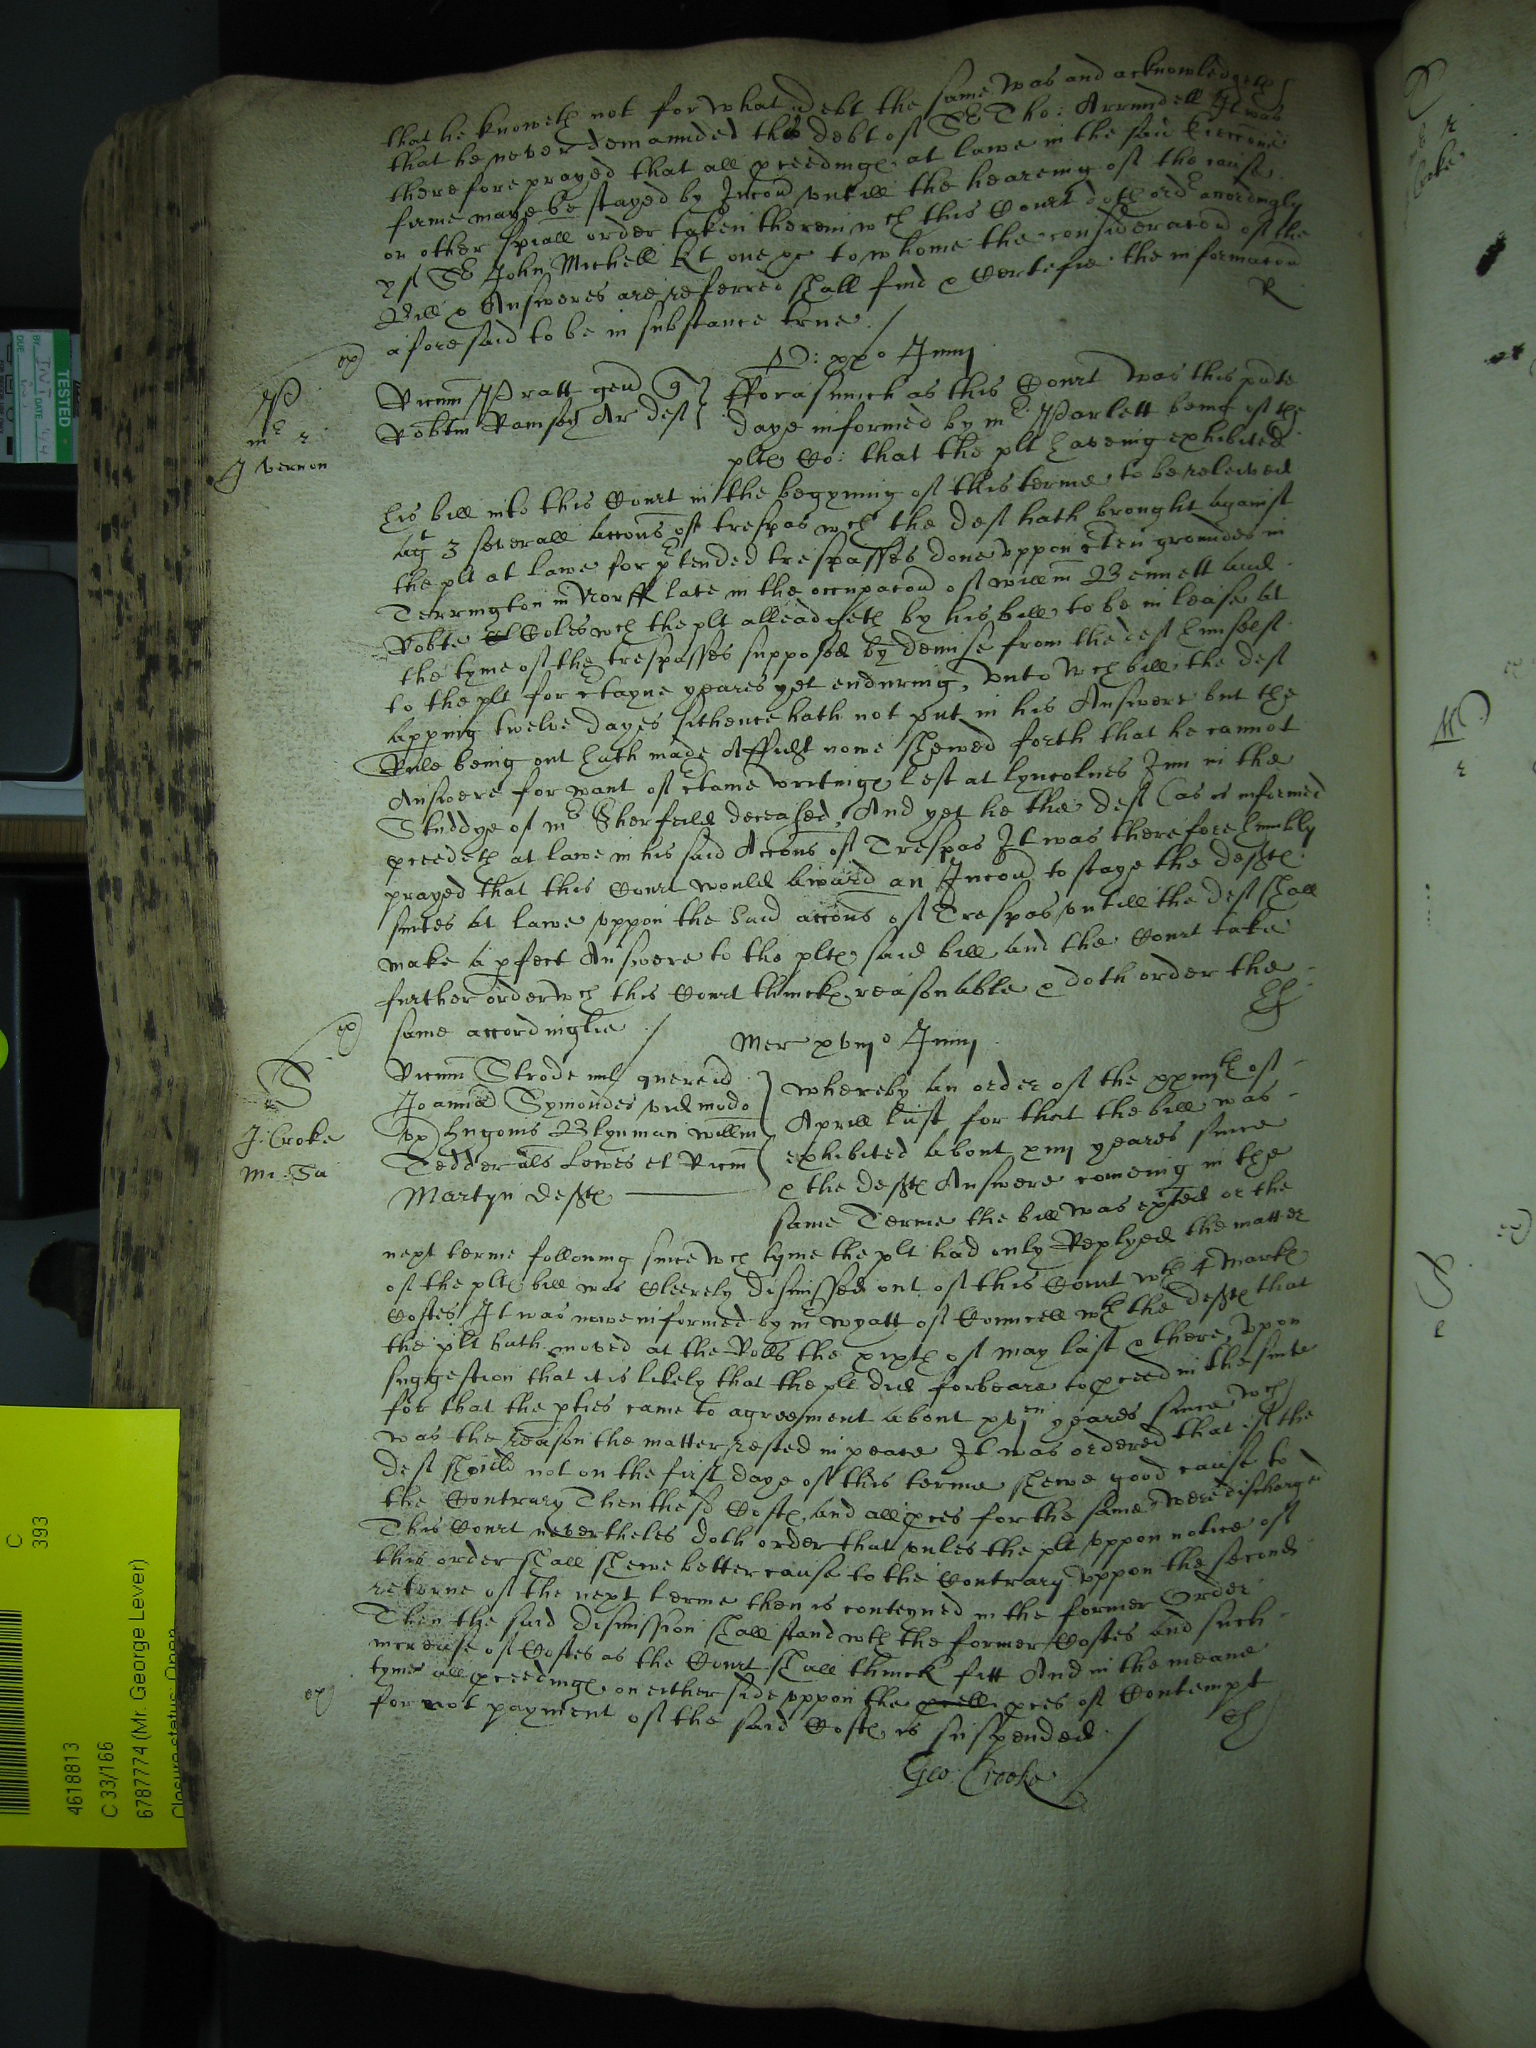 that he knoweth not for what debt the same was and acknowledgeth
that he never demaunded the debt of Sr Tho: Arrundell It was
therefore prayed that all pceedinge at lawe in the said
firme maye be stayed by Iniucon untill the heareing of the cause
or other spiall order taken therein wch this Court doth ordr accordingly
yf Sr John Michell kt one &c to whome the consideracon of the
Bill & Answeres are referred shall find & Certefie the informacon
aforesaid to be in substance true /
R
ex
P
mr r
J Vernon
D: xxo Junij
Ricum Pratt gen q
Robtm Ramsey Ar deft
Fforasmuch as this Court was this pnte
daye informed by mr Parlett being of the
plte Co: that the plt haveing exhibited
his bill into this Court in the begynnig of this terme to be releived
agt 3 severall accons of trespas wch the deft hath brought against
the plt at lawe for ptended trespasses done uppon cten groundes in
Terrington in Norff late in the occupacon of willm Bennett and
Robte Coles wch the plt alleadgeth by his bill to be in lease at
the tyme of the trespasses supposed by demise from the deft himselfe
to the plt for ctayne yeares yet enduring, unto wch bill the deft
apping twelve dayes sithence hath not put in his Answere but the
Rule being out hath made Affidt nowe shewed forth that he cannot
Answere for want of ctaine writinge left at Lyncolnes Inn in the
Studdye of mr Sherfeild deceased, And yet he the deft (as is informed
pceedeth at lawe in his said Accons of Trespas It was therefore humbly
prayed that this Court would award an Iniucon to staye the defts
suites at lawe uppon the said accons of Trespas untill the deft shall
make a pfect Answere to the plte said bill and the Court take
further order wch this Court thincke reasonable & doth order the
same accordinglie /
ex
S
J: Croke
Mr: Sa
Mer xviijo Junij
Ricum Strode mil quer
Joannā Symondes vid modo
ux Hugonis Blynman willm
Tedder als Lowes et Ricm
Martyn defte
whereby an order of the xxiijth of
Aprill last for that the bill was
exhibited about xiiij yeares since
& the defte Answere comeing in the
same Terme the bill was exted or the
next terme following since wch tyme the plt had only Replyed the matter
of the plte bill was Cleerely dismissed out of this Court wth 4 marke
Costes It was nowe informed by mr wyatt of Councell wth the defte that
the plt hath moved at the Rolls the xixth of may last & there, upon
suggestion that it is likely that the plt did forbeare to pceed in the suite
for that the pties came to agreement about xvjen yeares since wch
was the reason the matter rested in peace It was ordered that if the
deft should not on the first daye of this terme shewe good cause to
the Contrary Then these Coste, and all pces for the same were discharged
This Court nevertheles doth order that unles the plt uppon notice of
this order shall shewe better cause to the Contrary uppon the second
returne of the next terme then is conteyned in the former Order
Then the said dismission shall stand wth the former Costes and such
increase of Costes as the Court shall thinck fitt And in the meane
tyme all pceedinge on either side uppon the pces of Contempt
for not payment of the said Coste is suspended /
ex
Geo: Crooke
TESTED
DATE
DUE
C
393
4618813
C 33/166
6787774 (Mr. George Lever)
Closure status: Open